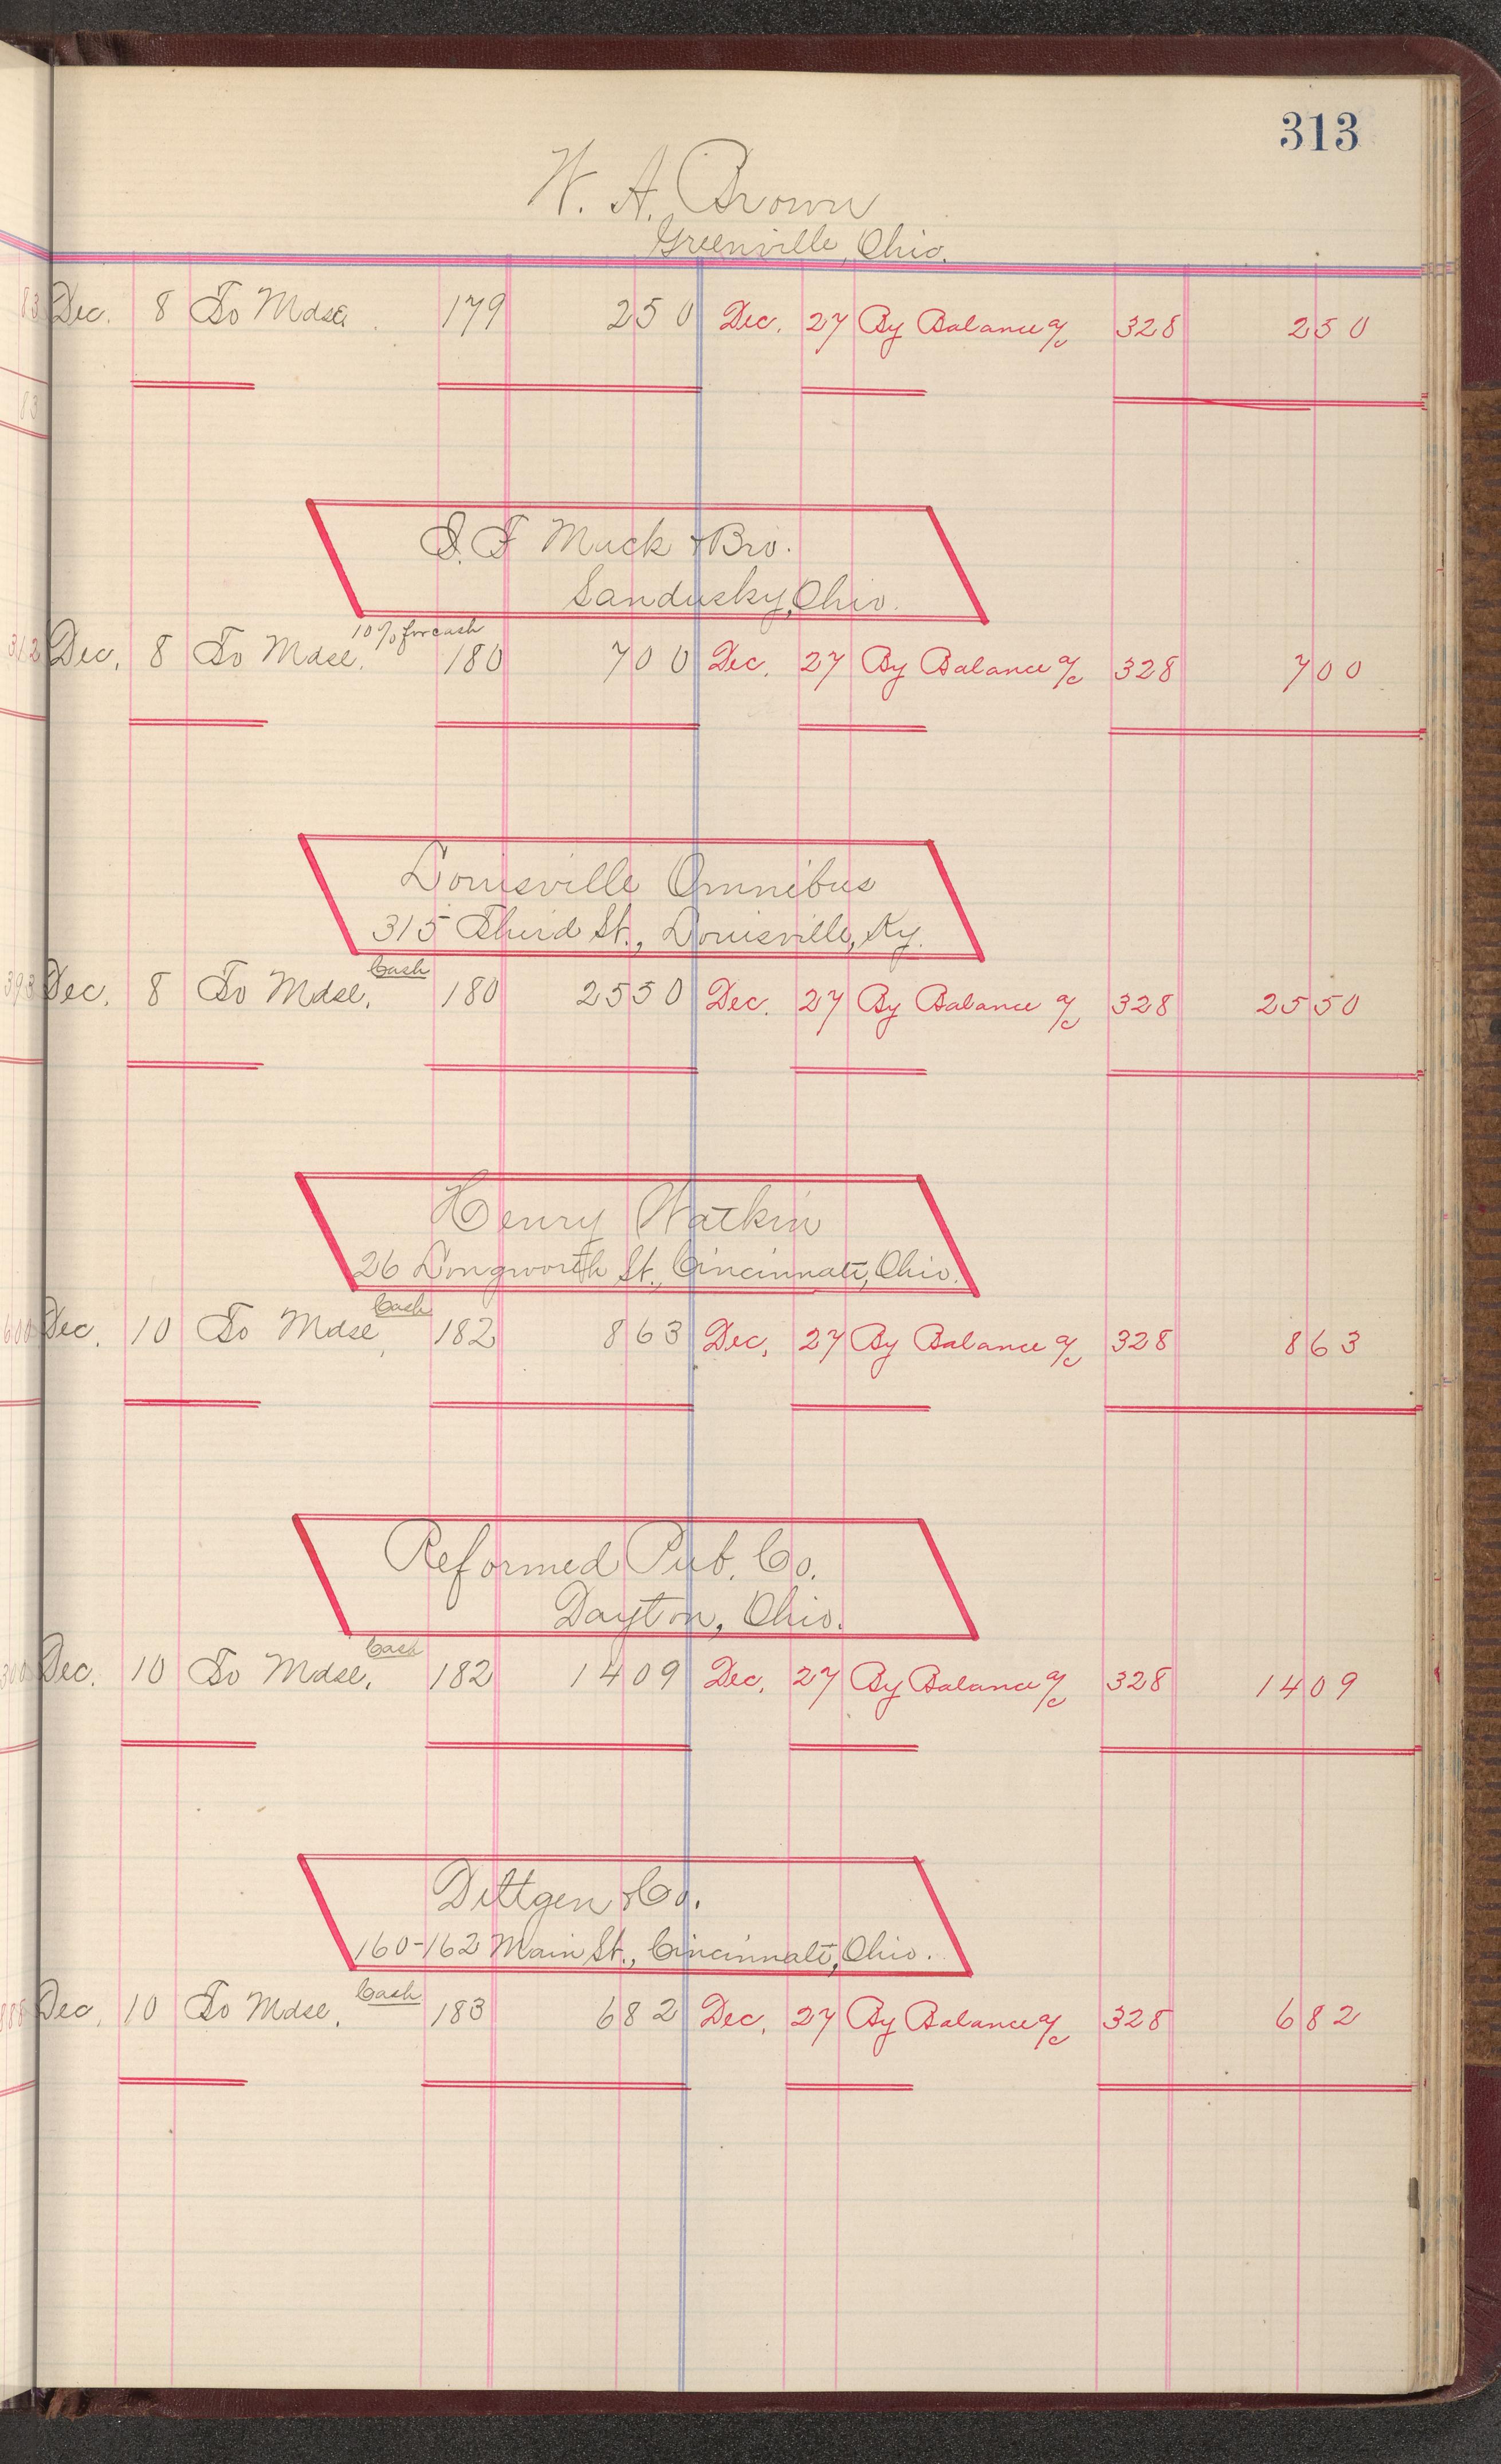 313
W. A. Brown
Greenville, Ohio.
Dec. 8 To Mdse. 179 2 50 Dec. 27 By Balance a/c 328 2 50
I. F Mack & Bro.
Sandusky, Ohio.
10% for cash
Dec. 8 To Mdse. 180 7 00 Dec. 27 By Balance a/c 328 7 00
Louisville Omnibus
315 Third St., Louisville, Ky.
Cash
Dec. 8 To Mdse. 180 25 50 Dec. 27 By Balance a/c 328 25 50
Henry Watkin
26 Longworth St., Cincinnati, Ohio.
Cash
Dec. 10 To Mdse. 182 8 63 Dec. 27 By Balance a/c 328 8 63
Reformed Pub. Co.
Dayton, Ohio.
Cash
Dec. 10 To Mdse. 182 14 09 Dec. 27 By Balance a/c 328 14 09
Dittgen & Co.
160-162 Main St., Cincinnati, Ohio.
Cash
Dec. 10 To Mdse. 183 6 82 Dec. 27 By Balance a/c 328 6 82